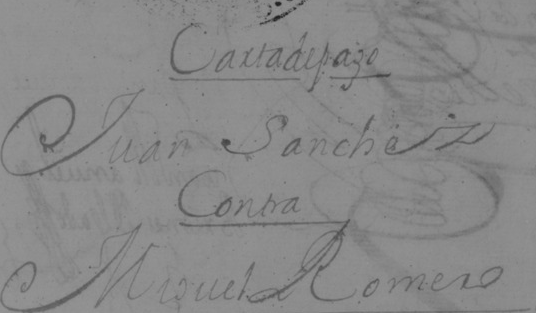 Cartadepago
Juan Sanchez
Contra
Miguel Romero